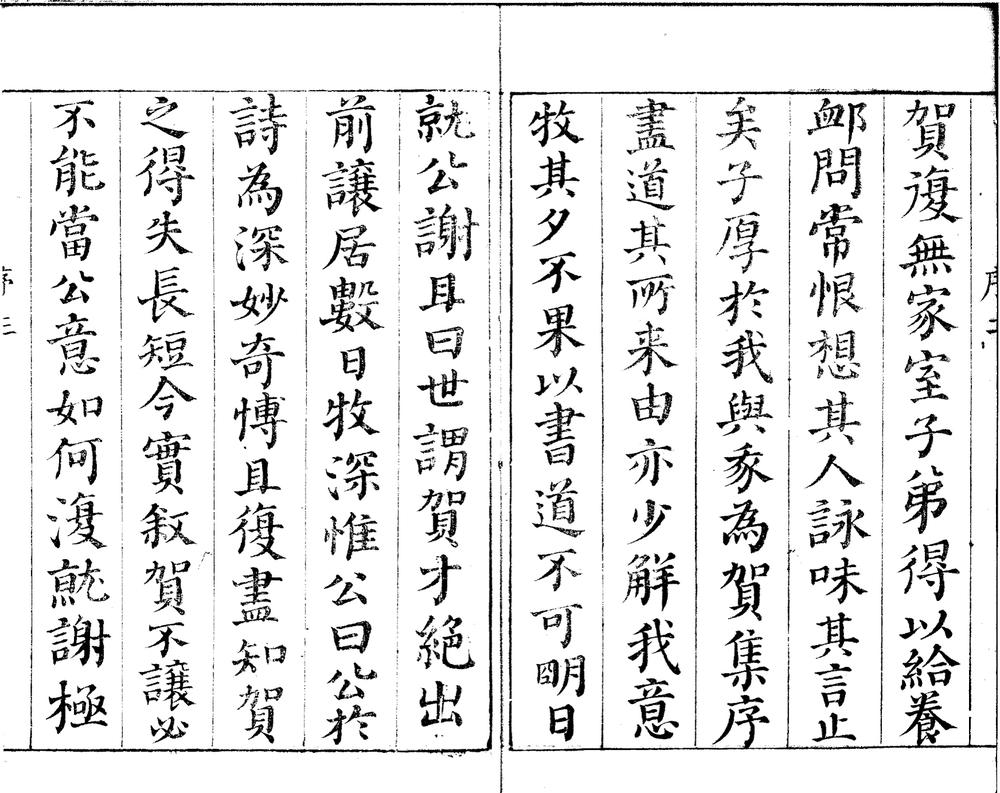 賀復無家室子弟得以給養
卹問常恨想其人詠味其言止
矣子厚於我與汝為賀集序
盡道其所来由亦少解我意
牧其夕不果以書道不可明日
就公謝且曰世謂賀才絕出
前讓居數日牧深惟公曰公於
詩為深妙奇愽且復盡知賀
之得失長短今實叙賀不讓必
不能當公意如何復就謝極
序三